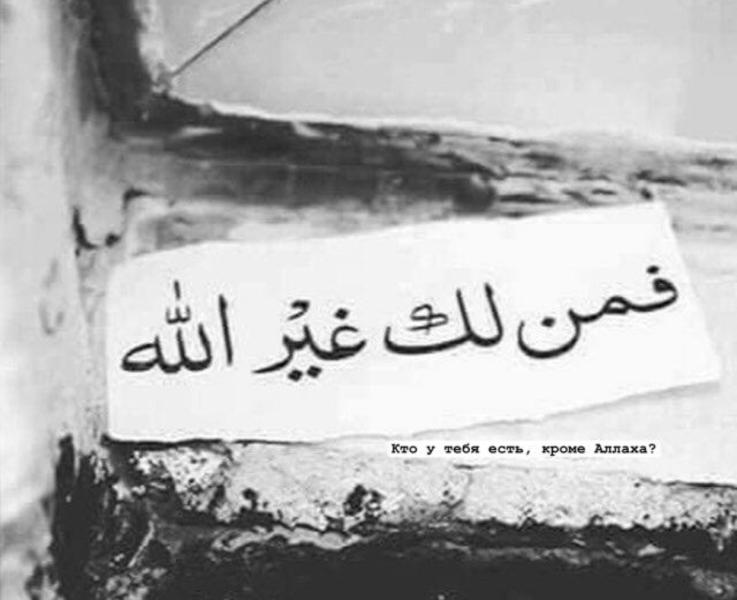 فمن لك غيْر الله
Кто у тебя есть, кроме Аллаха?